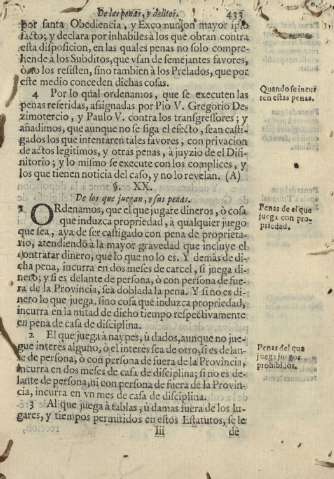 De las penas, y delitos. 433
por santa Obediencia, y Excomunion mayor ipso
facto; y declara por inhabiles à los que obran contra
esta disposicion, en las quales penas no solo compre-
hende à los Subditos, que vsan de semejantes favores,
ò no los resisten, sino tambien à los Prelados, que por
este medio conceden dichas cosas.
4 Por lo qual ordenamos, que se executen las
penas referidas, assignadas por Pio V. Gregorio De-
zimotercio, y Paulo V. contra los transgressores; y
añadimos, que aunque no se siga el efecto, sean casti-
gados los que intentaren tales favores, con privacion
de actos legitimos, y otras penas, à juyzio de el Difi-
nitorio; y lo mismo se execute con los complices, y
los que tienen noticia del caso, y no lo revelan. (A)
Quando se incur
ren estas penas.
§. XX.
De los que juegan, y sus penas.
1 ORdenamos, que el que jugare dineros, ò cosa
que induzca propriedad, à qualquier juego
que sea, aya de ser castigado con pena de proprieta-
rio, atendiendo à la mayor gravedad que incluye el
contratar dinero, que lo que no lo es. Y demàs de di-
cha pena, incurra en dos meses de carcel, si juega di-
nero; y si es delante de persona, ò con persona de fue-
ra de la Provincia, sea doblada la pena. Y si no es di-
nero lo que juega, sino cosa que induzca propriedad,
incurra en la mitad de dicho tiempo respectivamente
en pena de casa de disciplina.
Penas de el que
juega con pro-
priedad.
2 El que juega à naypes, ù dados, aunque no jue-
gue interès alguno, ò el interès sea de otro, si es delan-
te de persona, ò con persona de fuera de la Provincia,
incurra en dos meses de casa de disciplina; si no es de-
lante de persona, ni con persona de fuera de la Provin-
cia, incurra en vn mes de casa de disciplina.
Penas del que
juega juegos
prohibidos.
3 Al que juega à tablas, ù damas fuera de los lu-
gares, y tiempos permitidos en estos Estatutos, se le
Iii de